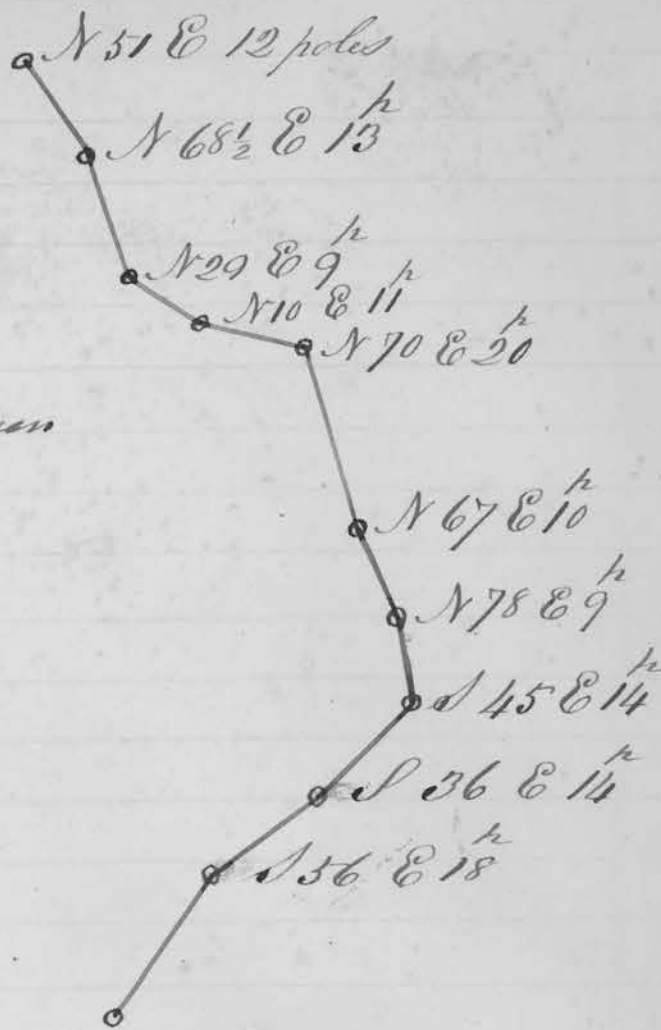 N 51 E 12 poles
N 68½ E 13 p
N 29 E 9 p
N 10 E 11 p
N 70 E 20 p
N 67 E 10 p
N 78 E 9 p
S 45 E 14 p
S 36 E 14 p
S 56 E 18 p